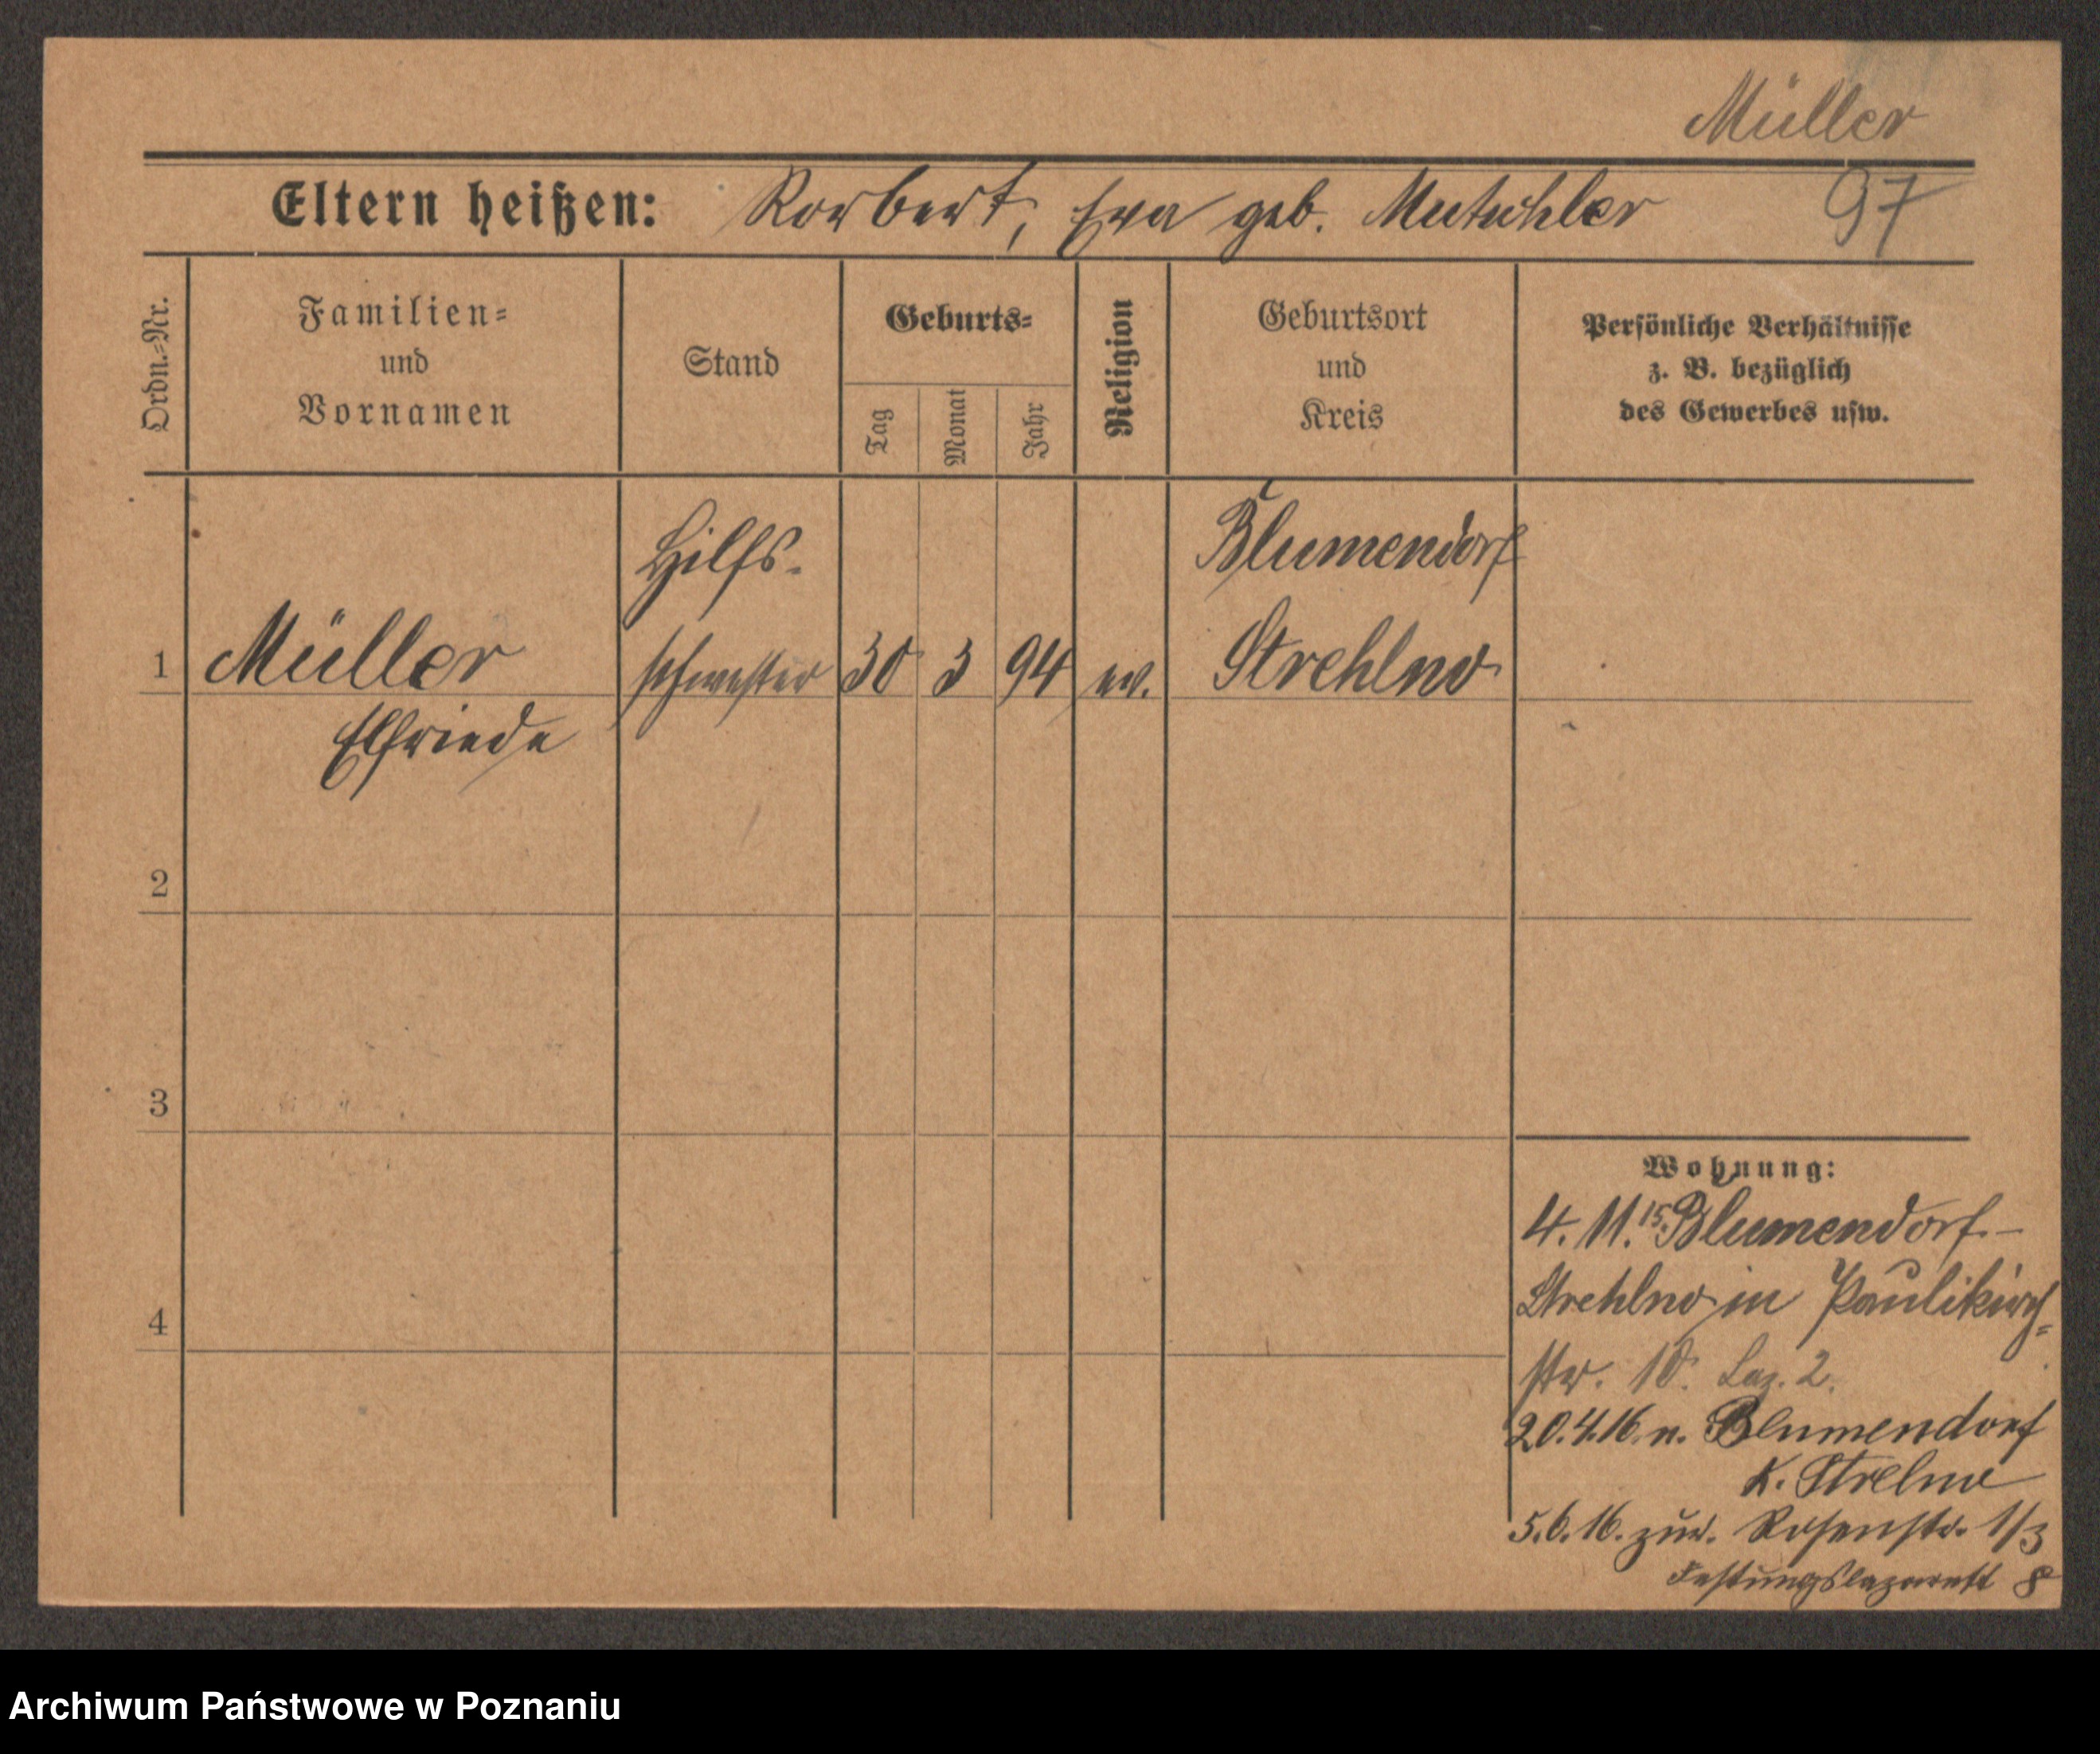 Müller
Eltern heißen: Norbert, Eva geb. Mutschler 97
Ordn.-Nr.
Familien-
und
Vornamen
Stand
Geburts-
Tag
Monat
Jahr
Religion
Geburtsort
und
Kreis
Persönliche Verhältnisse
z. B. bezüglich
des Gewerbes usw.
Hilfs- Blumendorf
1 Müller schwester 30 3 94 ev. Strehlno
Elfriede
2
3
4
Wohnung:
4. 11. 15. Blumendorf-
Strehlno in Paulikirch-
str. 10. Laz. 2.
20.4.16. n. Blumendorf
K. Strelno
5.6.16. zur. Rosenstr. 1/3
Festungslazarett 8
Archiwum Państwowe w Poznaniu